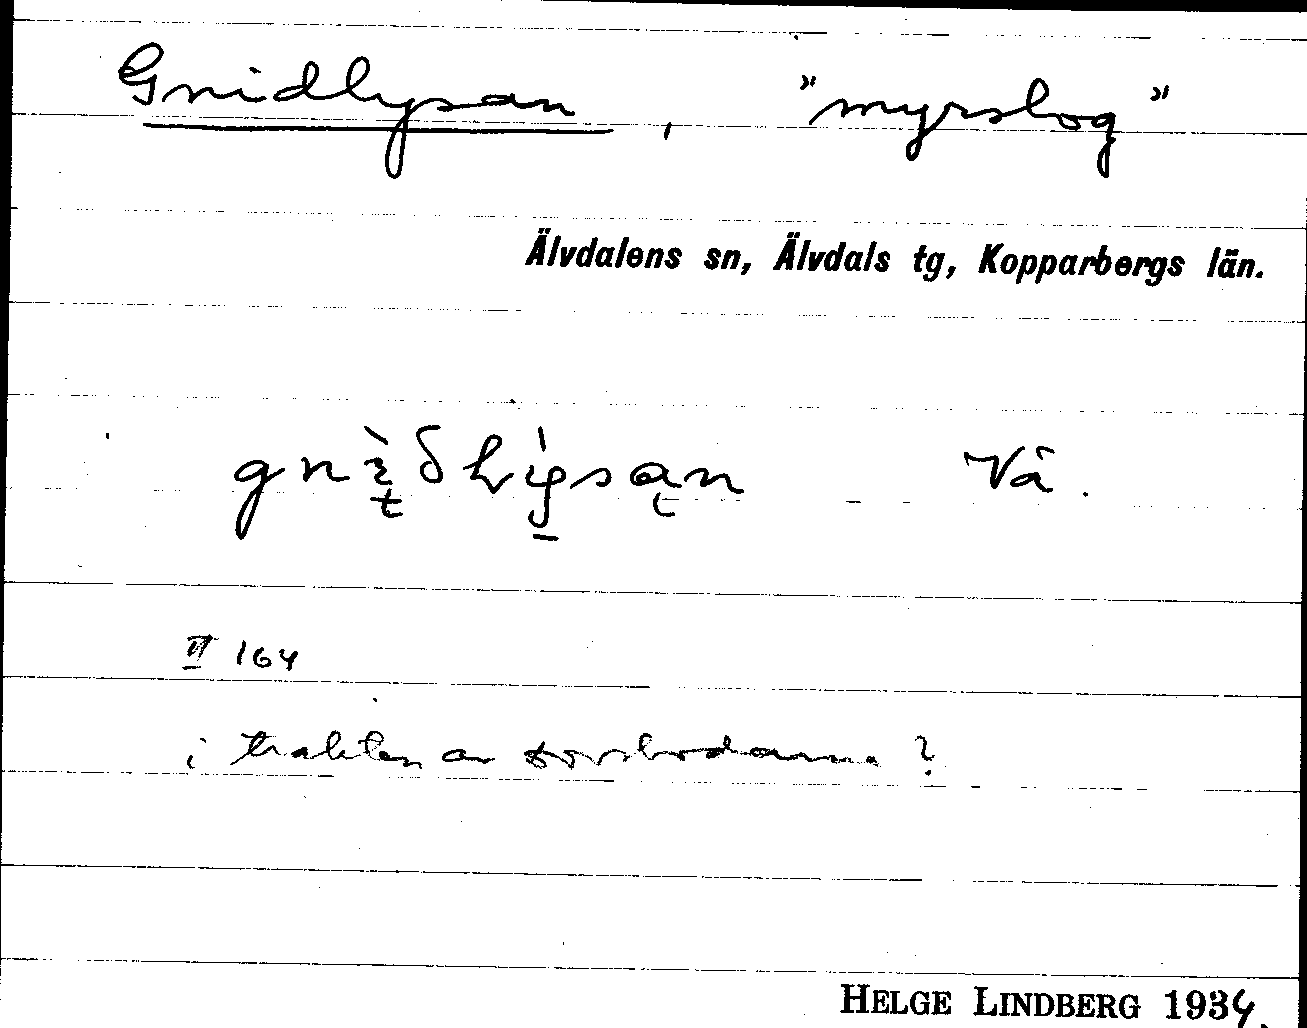 Gnidlysan, "myrslog"
Älvdalens sn, Älvdals tg, Kopparbergs län.
Vå.
II 164
i trakten av ?
HELGE LINDBERG 1934.